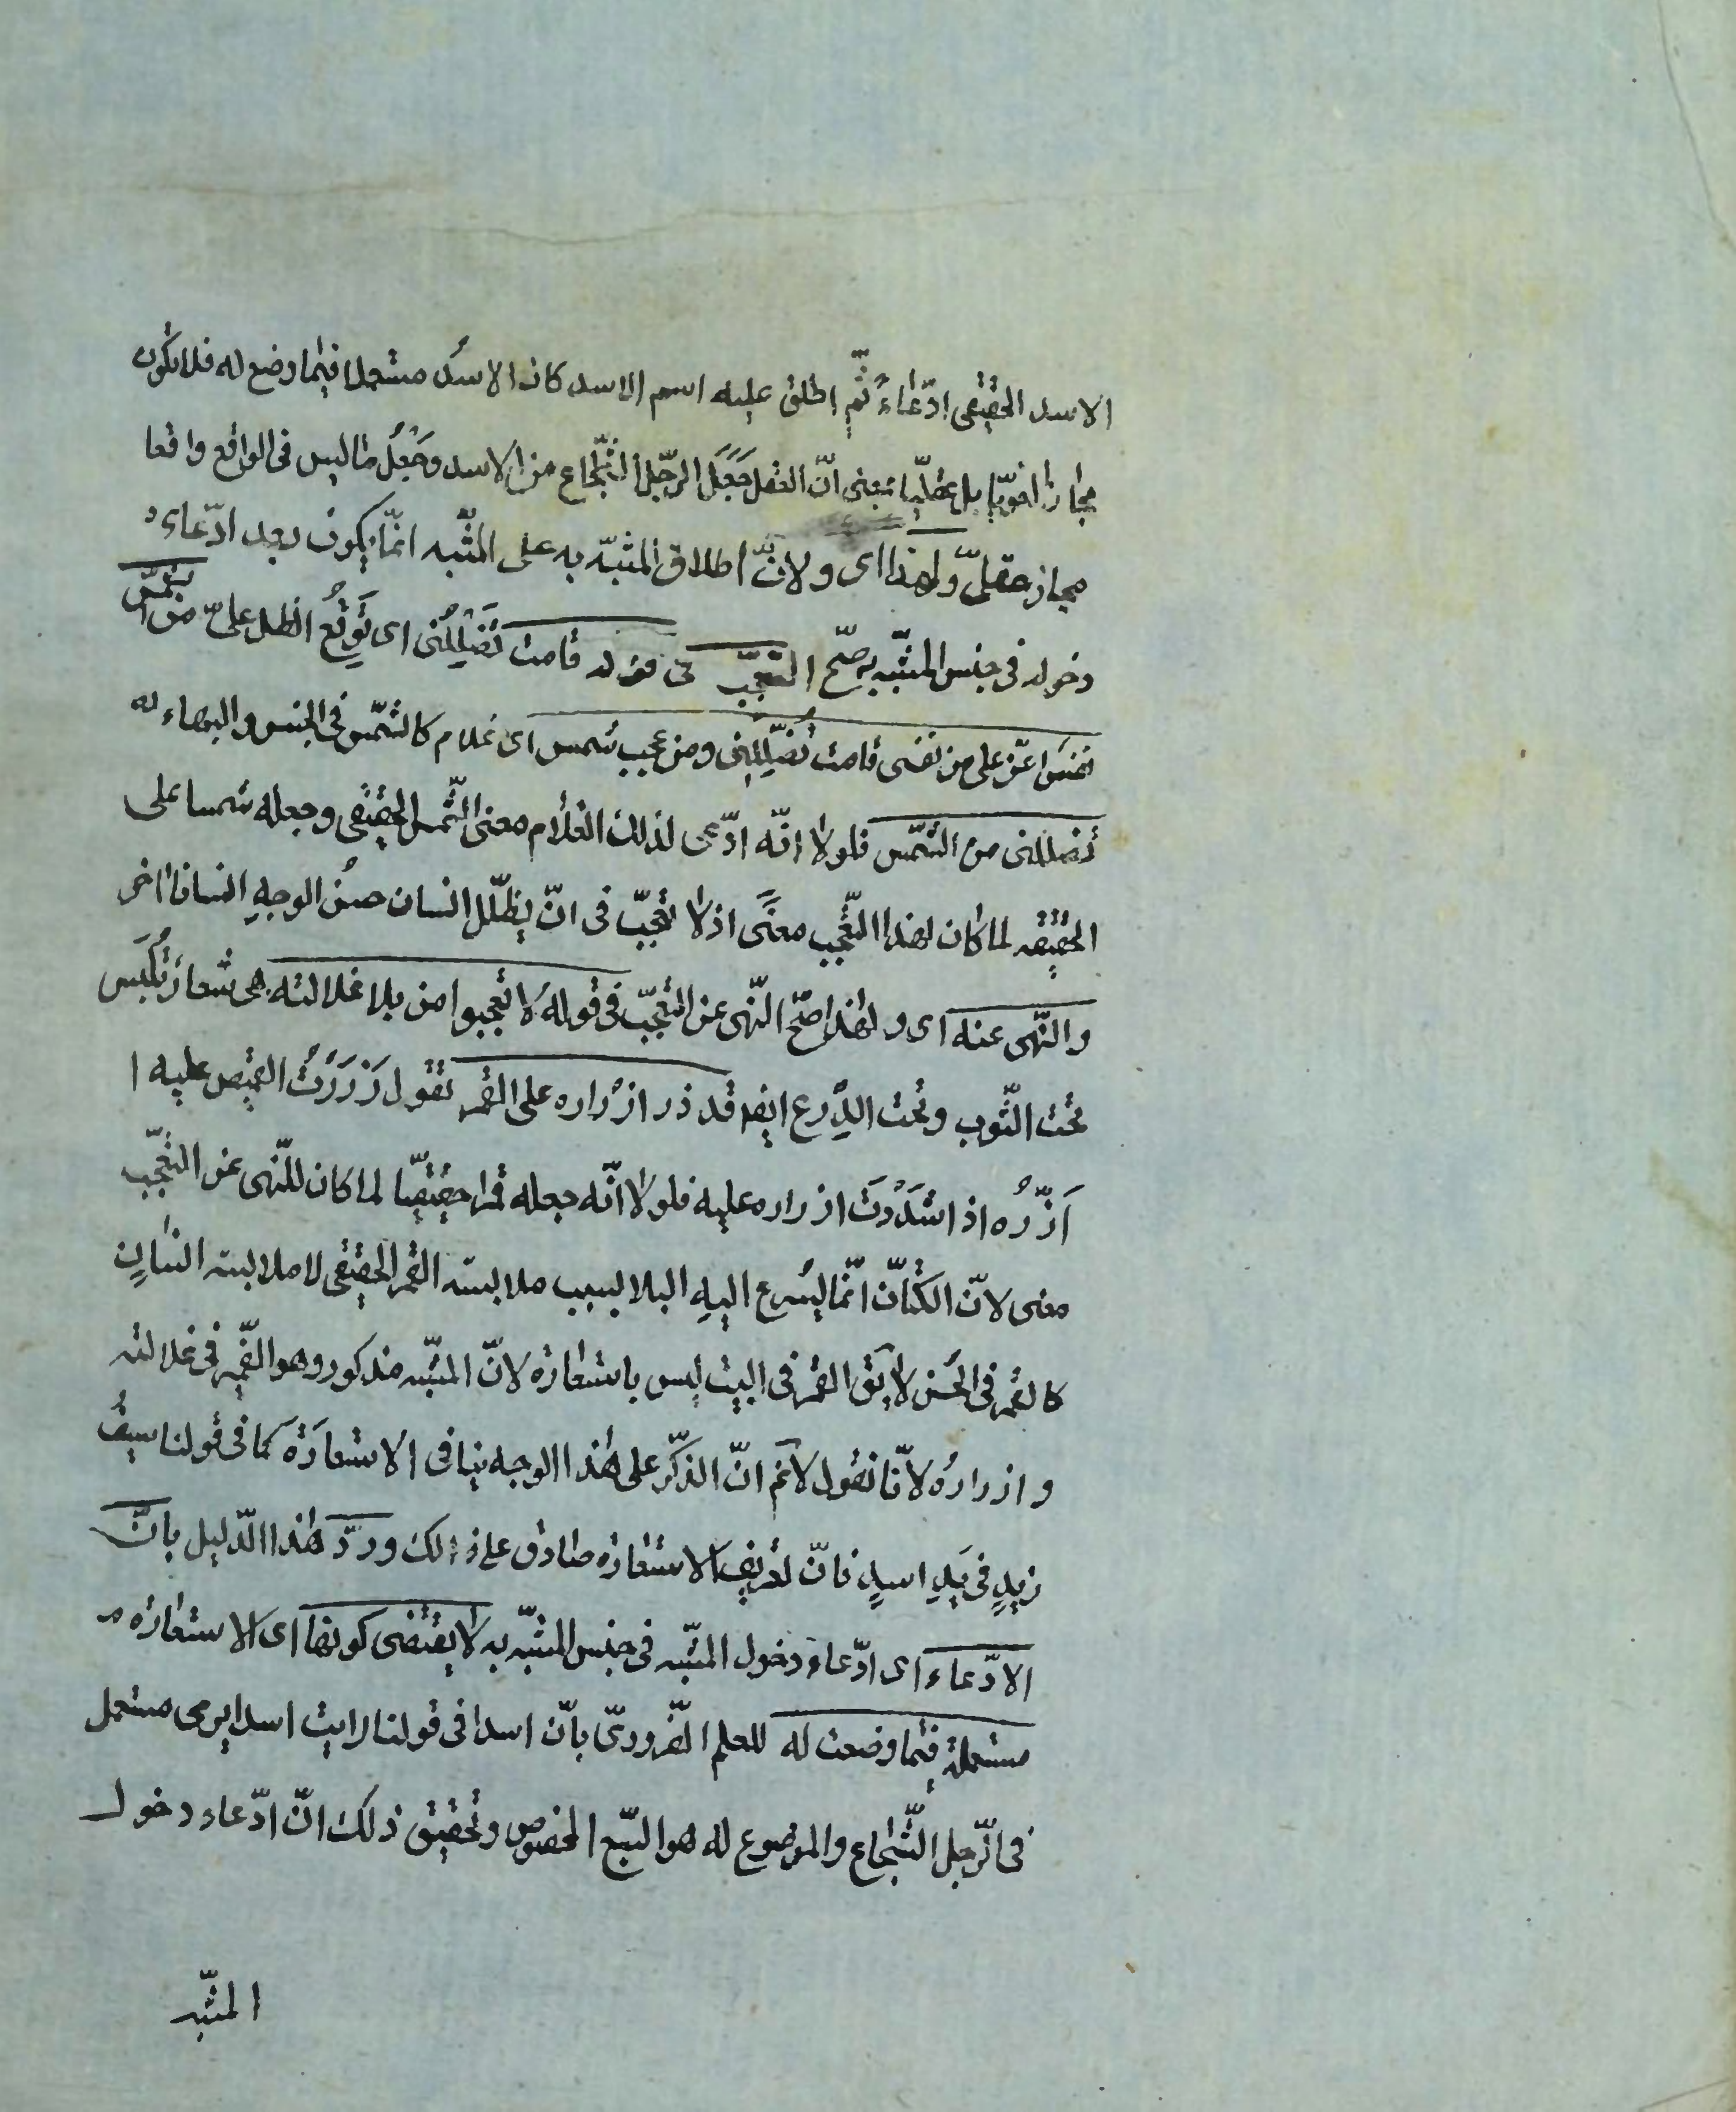 الاسد الحقيقى ادّعاءً ثم اطلق عليه اسم الاسد كان الاسدُ مستعملا فيما وضع له فلا يكون
مجازا لغويّا بل عقليّا بمعنى انّ العقل جَعَلَ الرّجل الشّجاع من الاسد وجَعْلُ ما ليس فى الواقع واقعا
مجاز عقلىّ ولهذا اى ولانّ اطلاق المشبّه به على المشبّه انمّا يكون بعد ادّعاء
دخوله فى جنس المشبّه به صحّ التعجّب فى قوله قامت تُظَلِّلُنى اى تُوقِعُ الظل علىّ من الشّمس
نفسٌ اعزّ على من نفسى قامت تُظَلِّلُنى ومن عجب شمس اى غلام كالشمّس فى الحسن والبهاء
تُظللنى من الشّمس فلولا انّه ادّعى لذلك الغلام معنى الشّمس الحقيقى وجعله شمسا على
الحقيقه لما كان لهذا التّعجب معنًى اذ لا تعجّب فى انّ يظلّل انسان حسُن الوجهِ انسانا اخر
والنّهى عنه اى ولهذا صحّ النّهى عن التعجّب فى قوله لا تعجبوا من بلا غلالته هى شعار تُلْبَس
تحت الثّوب وتحت الدِّرع ايضا قد زر ازراره على القمر تقول زَرَرْتُ القميص عليه ا
اَزُرّه اذا شَدَدْتَ ازراره عليه فلولا انّه جعله قمرا حقيقيّا لما كان للنّهى عن التعّجّب
معنى لانّ الكتّانّ انّما يسُرع اليهِ البلا بسبب ملابسته القمر الحقيقى لا ملابسة انسانٍ
كالقمر فى الحسُن لا يق القمر فى البيت ليس باستعارة لانّ المشبّه مذكور وهو الضّمير فى غلالته
وازراره لانّا نقول لا نم انّ الذكّر على هذا الوجه ينافى الاستعارَة كما فى قولنا سيفُ
زيدٍ فى يَدِ اسدٍ فانّ تعريف الاستعاره صادق على ذلك وردّ هذا الدّليل بانّ
الادّعاء اى ادّعاء دخول المشبّه فى جنس المشبّه به لا يقتضى كونها اى الاستعاره
مستعملة فيما وضعت له للعلم الضّرورىّ بأنّ اسدا فى قولنا رايت اسدا يرمى مستعمل
فى الرّجل الشّجاع والموضوع له هو السّبع المخصوص وتحقيق ذلك انّ ادّعاء دخول
المشبّه